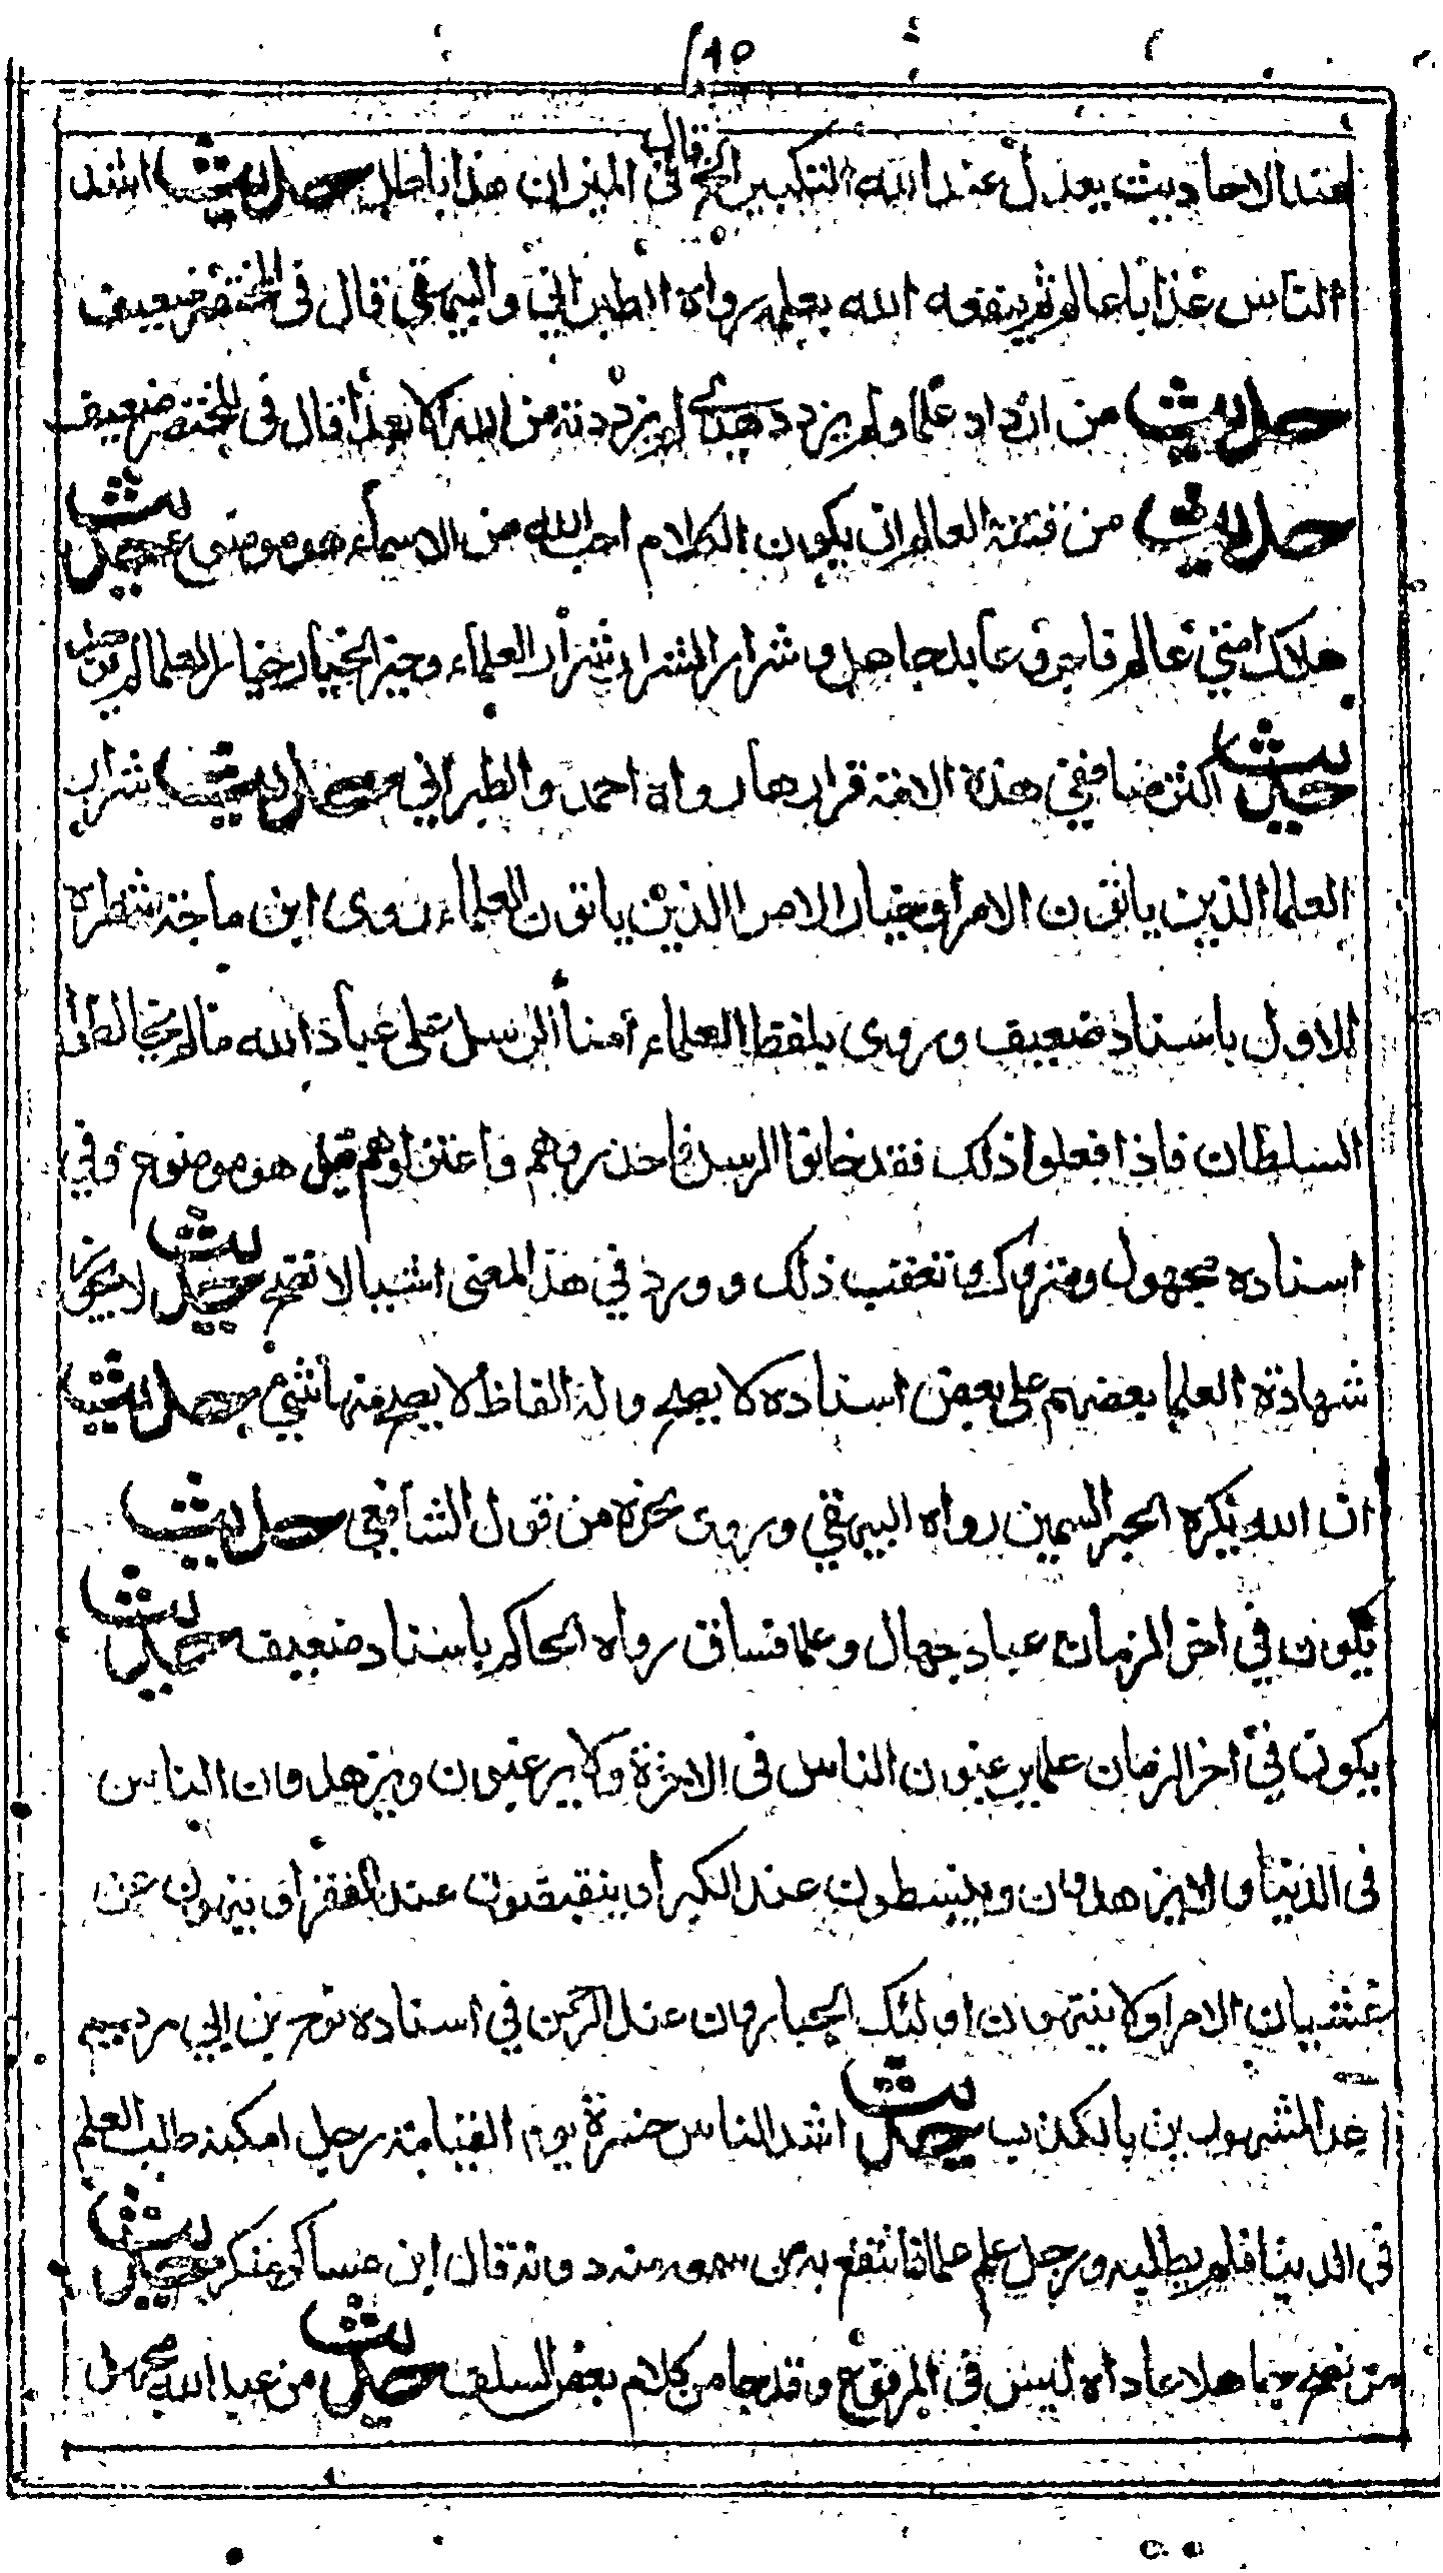 ١٥
هذا الاحاديث يعدل عند الله التكبير الخ قال فى الميزان هذا باطل حديث اشد
الناس عذابا عالم لم ينفعه الله بعلمه رواه الطبراني والبيهقي قال فى المختصر ضعيف
حديث من ازداد علما ولم يزدد هدى لم يزدد من الله الا بعدا قال فى المختصر ضعيف
حديث من فتنة العالم ان يكون الكلام احب اليه من الاسماء هو موضوع حديث
هلاك امتي عالم فاجر وعابد جاهل وشرار الشرار شرار العلماء وخير الخيار خيار العلما لم
حديث اكثر منافقي هذه الامة قراءها رواه احمد والطبراني حديث شرار
العلما الذين ياتون الامرا وخيار الامرا الذين ياتون العلماء روى ابن ماجة شطره
الاول باسناد ضعيف وروى بلفظ العلماء امنا الرسل على عباد الله مالم يخالطوا
السلطان فاذا فعلوا ذلك فقد خانوا الرسل فاحذروهم واعتزلوهم قيل هو موضوع وفي
اسناده مجهول ومتروك وتعقب ذلك وورد في هذا المعنى اشيا لا تصح حديث لا يجوز
شهادة العلما بعضهم على بعض اسناده لا يصح وله الفاظ لا يصح منها شي حديث
ان الله يكره الحبر السمين رواه البيهقي وروى نحوه من قول الشافعي حديث
يكون في اخر الزمان عباد جهال وعلما فساق رواه الحاكم باسناد ضعيف حديث
يكون في اخر الزمان علما يرغبون الناس فى الاخرة ولا يرغبون ويزهدون الناس
فى الدنيا ولا يزهدون وينبسطون عند الكبرا وينقبضون عند الفقرا وينهون عن
غشيان الامرا ولا ينتهون اولئك الجبارون عند الرحمن في اسناده نوح بن ابي مريم
احد المشهورين بالكذب حديث اشد الناس حسرة يوم القيامة رجل امكنه طلب العلم
فى الدنيا فلم يطلبه ورجل علم علما فانتفع به من سمعه منه دونه قال ابن عساكر منكر حديث
من نصح جاهلا عاداه ليس فى المرفوع وقد جا من كلام بعض السلف حديث من عبد الله بجهل